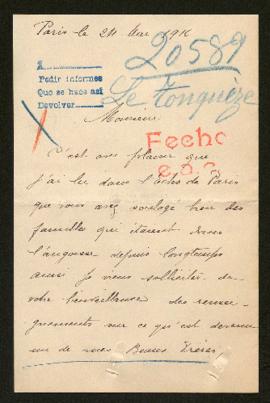 Paris le 24 Mai 1916
20589
A
Pedir informes
Que se hace así
Devolver
Le Tonquèze
Monsieur
Fecho
C'est avec plaisir que
j'ai lu dans l'Echo de Paris
que vous avez soulagé bien des
familles qui étaient dans
l'angoisse depuis longtemps
aussi je viens solliciter de
votre bienveillance des rensei-
gnements sur ce qu'est devenu
un de mes Beaux Frères